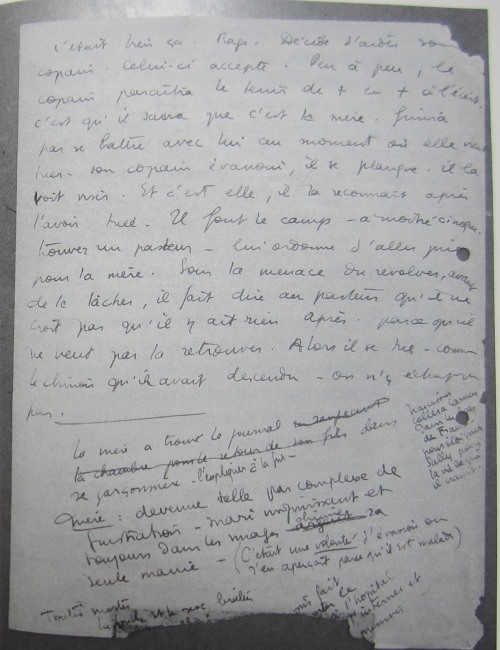 C'était bien ça. Rage. Décide d'aider son
copain. Celui-ci accepte. Peu à peu, le
copain paraîtra le tenir de + en + à l'écart.
c'est qu'il saura que c'est la mère. Finira
par se battre avec lui au moment où elle vient
tuer - son copain évanoui, il se planque. il la
voit noir. Et c'est elle, il la reconnaît après
l'avoir tuée. Il fout le camp - à moitié cinoque.
trouver un pasteur - lui ordonne d'aller prier
pour la mère. Sous la menace du revolver, avant
de le lâcher, il fait dire au pasteur qu'il ne
croit pas qu'il y ait rien après. parce qu'il
ne veut pas la retrouver. Alors il se tue - comme
le chinois qu'il avait descendu - on n'y échappe
pas.
La mère a trouvé le journal en rangeant
la chambre pour le retour de son fils dans
sa garçonnière - l'expliquer à la fin -
Mère : devenue telle par complexe de
frustration - mari impuissant et
toujours dans les nuages chinois sa
seule manie - (C'était une volonté d'évasion on
s'en aperçoit parce qu'il est malade)
Toutes mortes
la bouche et le sexe brûlés
fait
l'hôpital
internes et